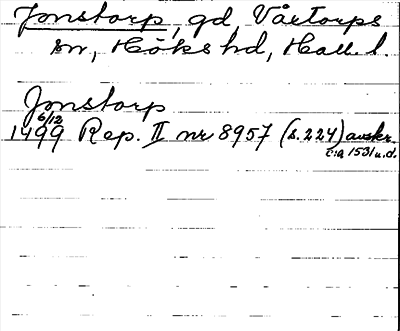 Jonstorp, gd, Vårtorps
sn, Höks hd, Hall. l.
Jonstorp
6/12
1499 Rep. II nr 8957 (s. 224) avskr.
c:a 1531 u.d.